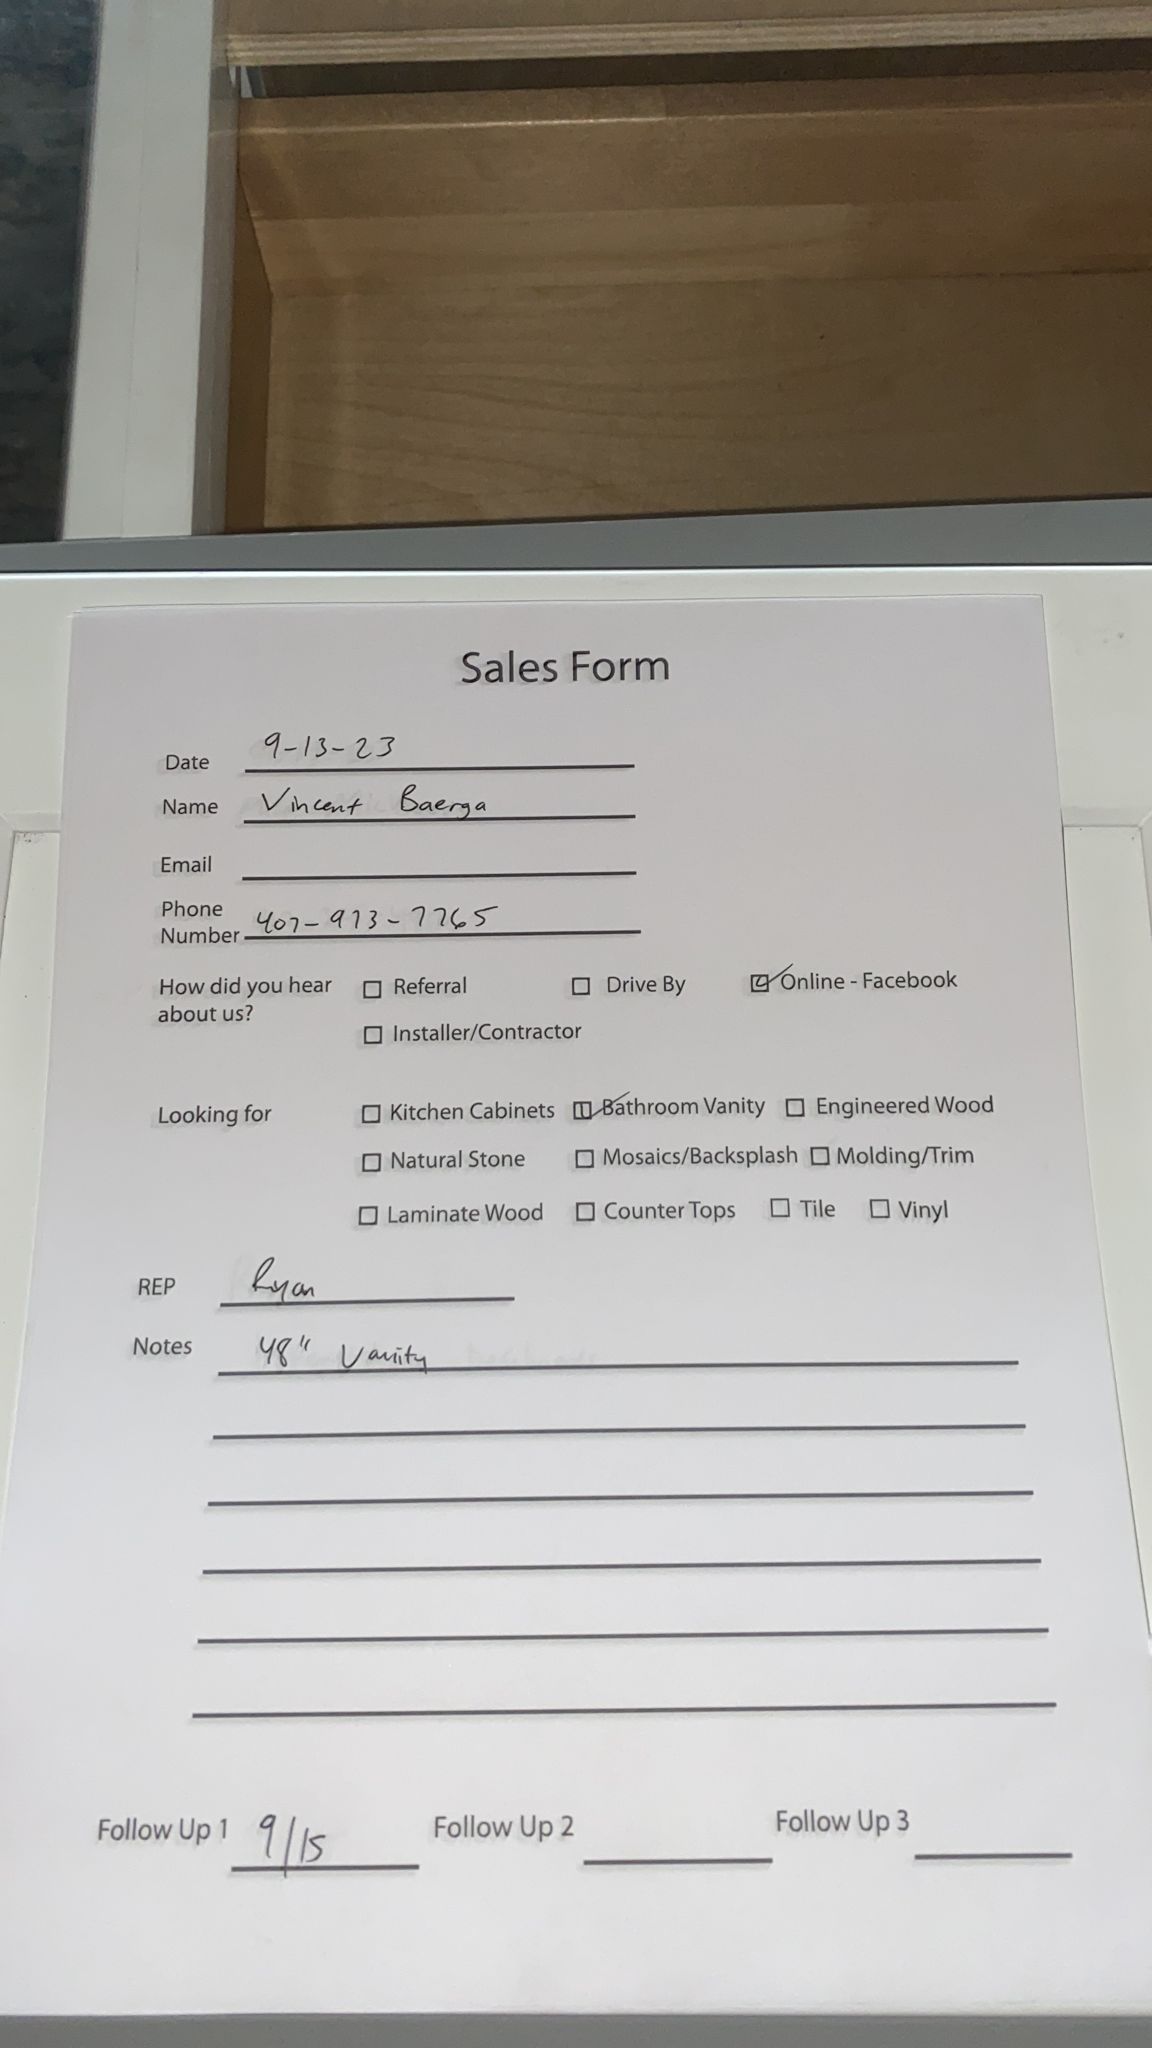 Sales Form
Date 9-13-23
Name Vincent Baerga
Email
Phone
Number 407-973-7765
How did you hear ☐ Referral ☐ Drive By ☑ Online - Facebook
about us? ☐ Installer/Contractor
Looking for ☐ Kitchen Cabinets ☑ Bathroom Vanity ☐ Engineered Wood
☐ Natural Stone ☐ Mosaics/Backsplash ☐ Molding/Trim
☐ Laminate Wood ☐ Counter Tops ☐ Tile ☐ Vinyl
REP Ryan
Notes 48" Vanity
Follow Up 1 9/15 Follow Up 2 Follow Up 3